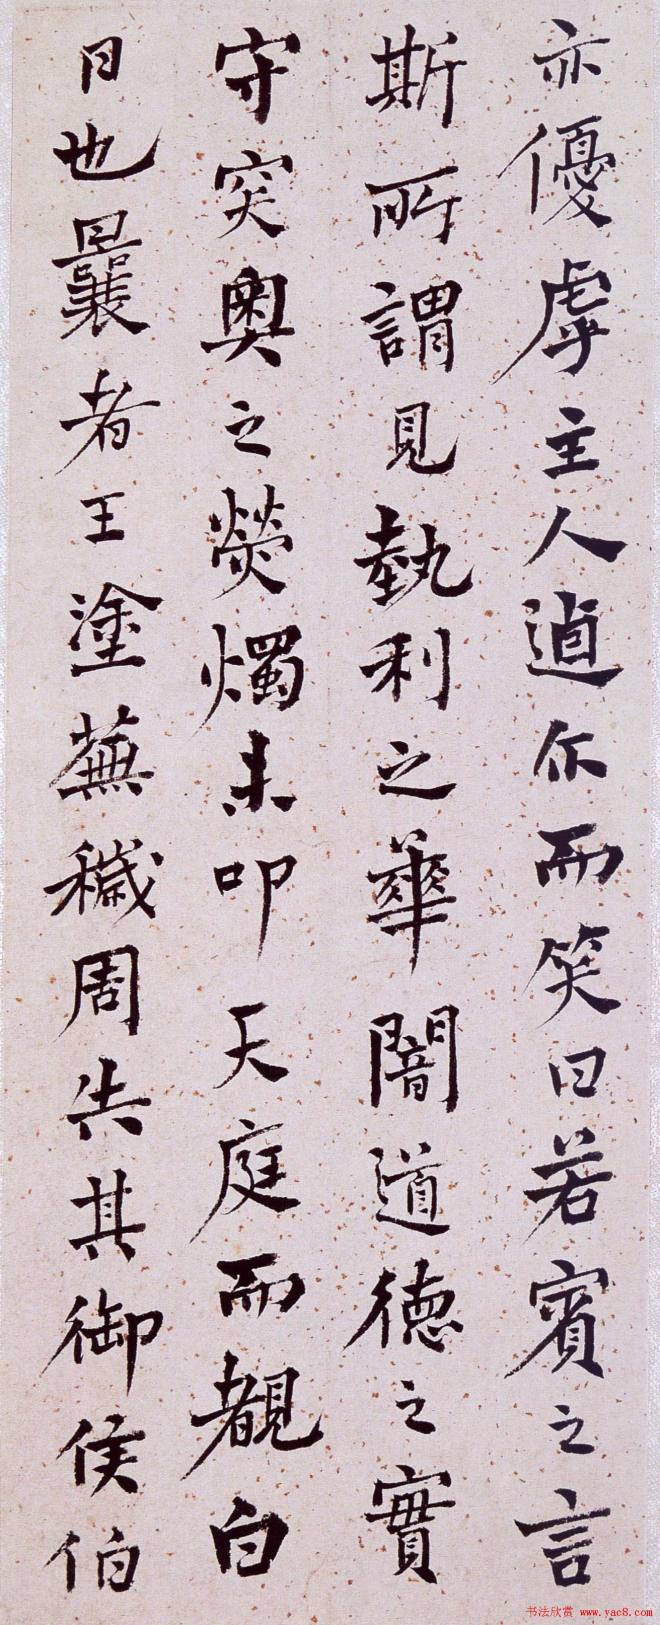 亦優虖主人逌尒而笑曰若賓之言
斯所謂見埶利之華闇道德之實
守突奧之熒燭未卬天庭而覩白
日也曩者王塗蕪穢周失其御侯伯
书法欣赏 www.yac8.com